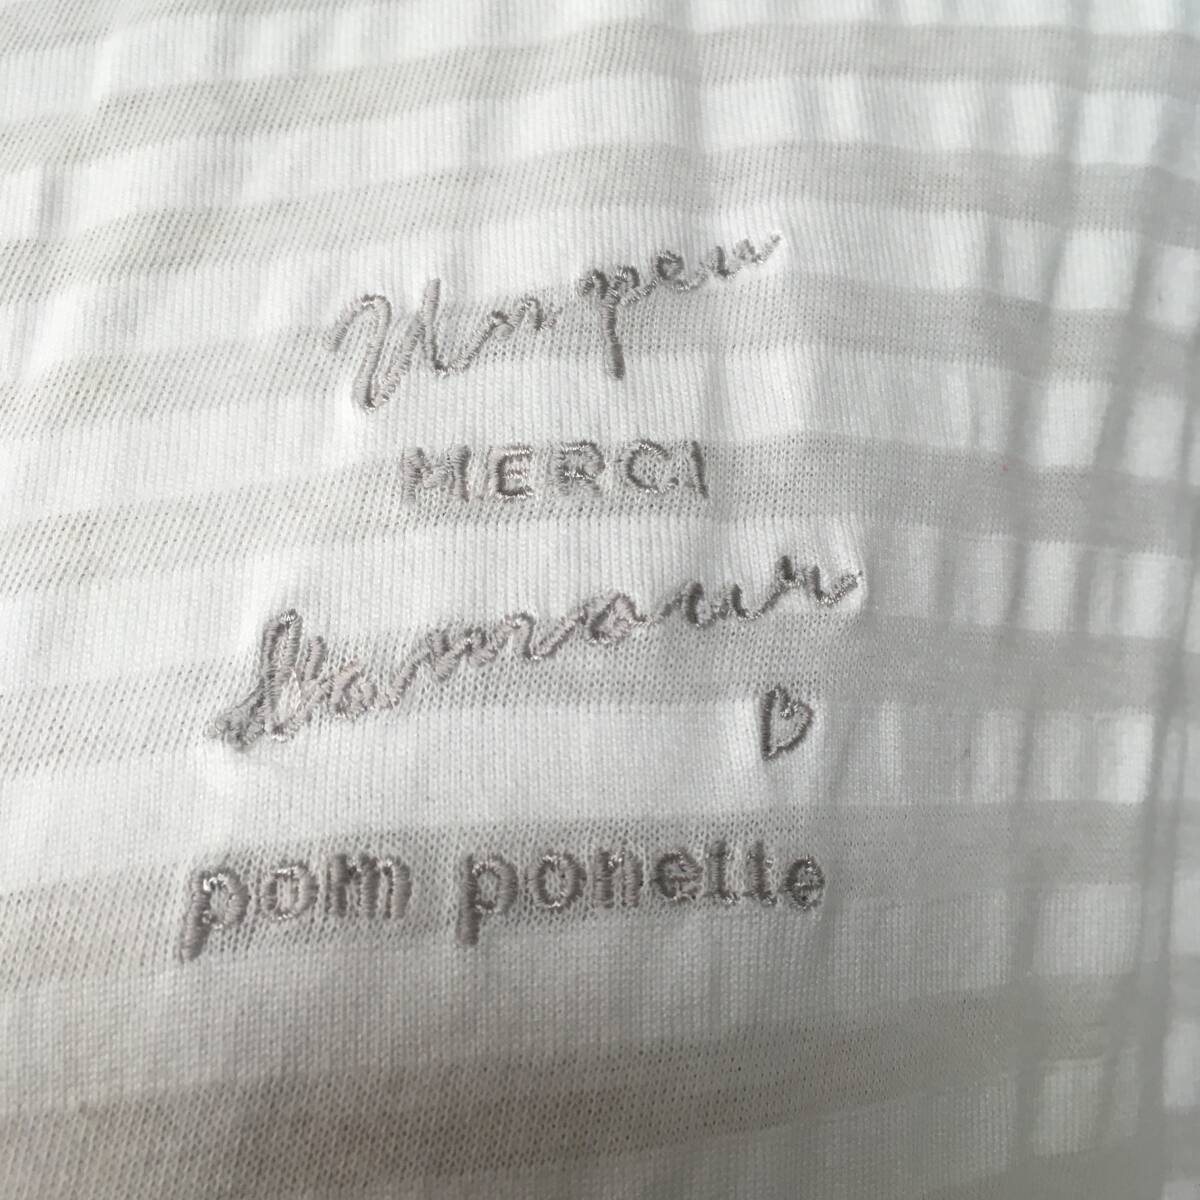 Un peu
MERCI
d'amour
pom ponette